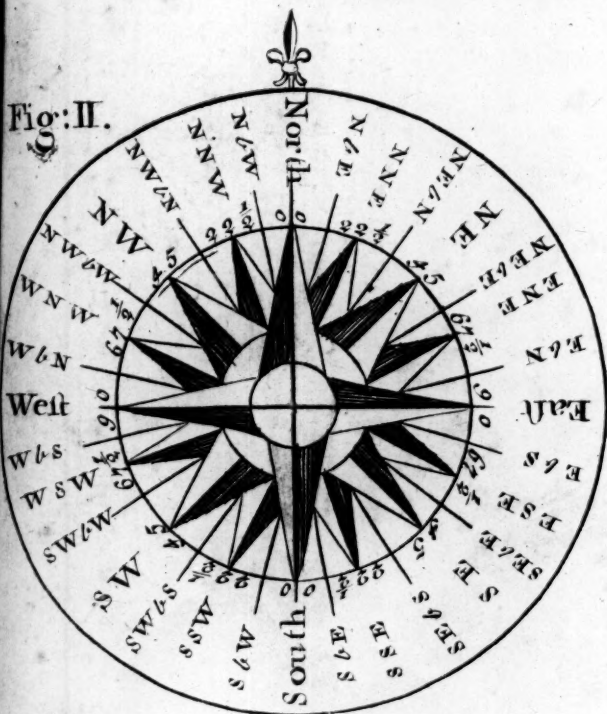 Fig: II.
North
N b E
N N E
N E b N
N E
N E b E
E N E
E b N
Eaſt
E b S
E S E
S E b E
S E
S E b S
S S E
S b E
South
S b W
S S W
S W b S
S W
S W b W
W S W
W b S
Weſt
W b N
W N W
N W b W
N W
N W b N
N N W
N b W
0 0
22 1/2
45
67 1/2
90
67 1/2
45
22 1/2
0 0
22 1/2
45
67 1/2
90
67 1/2
45
22 1/2